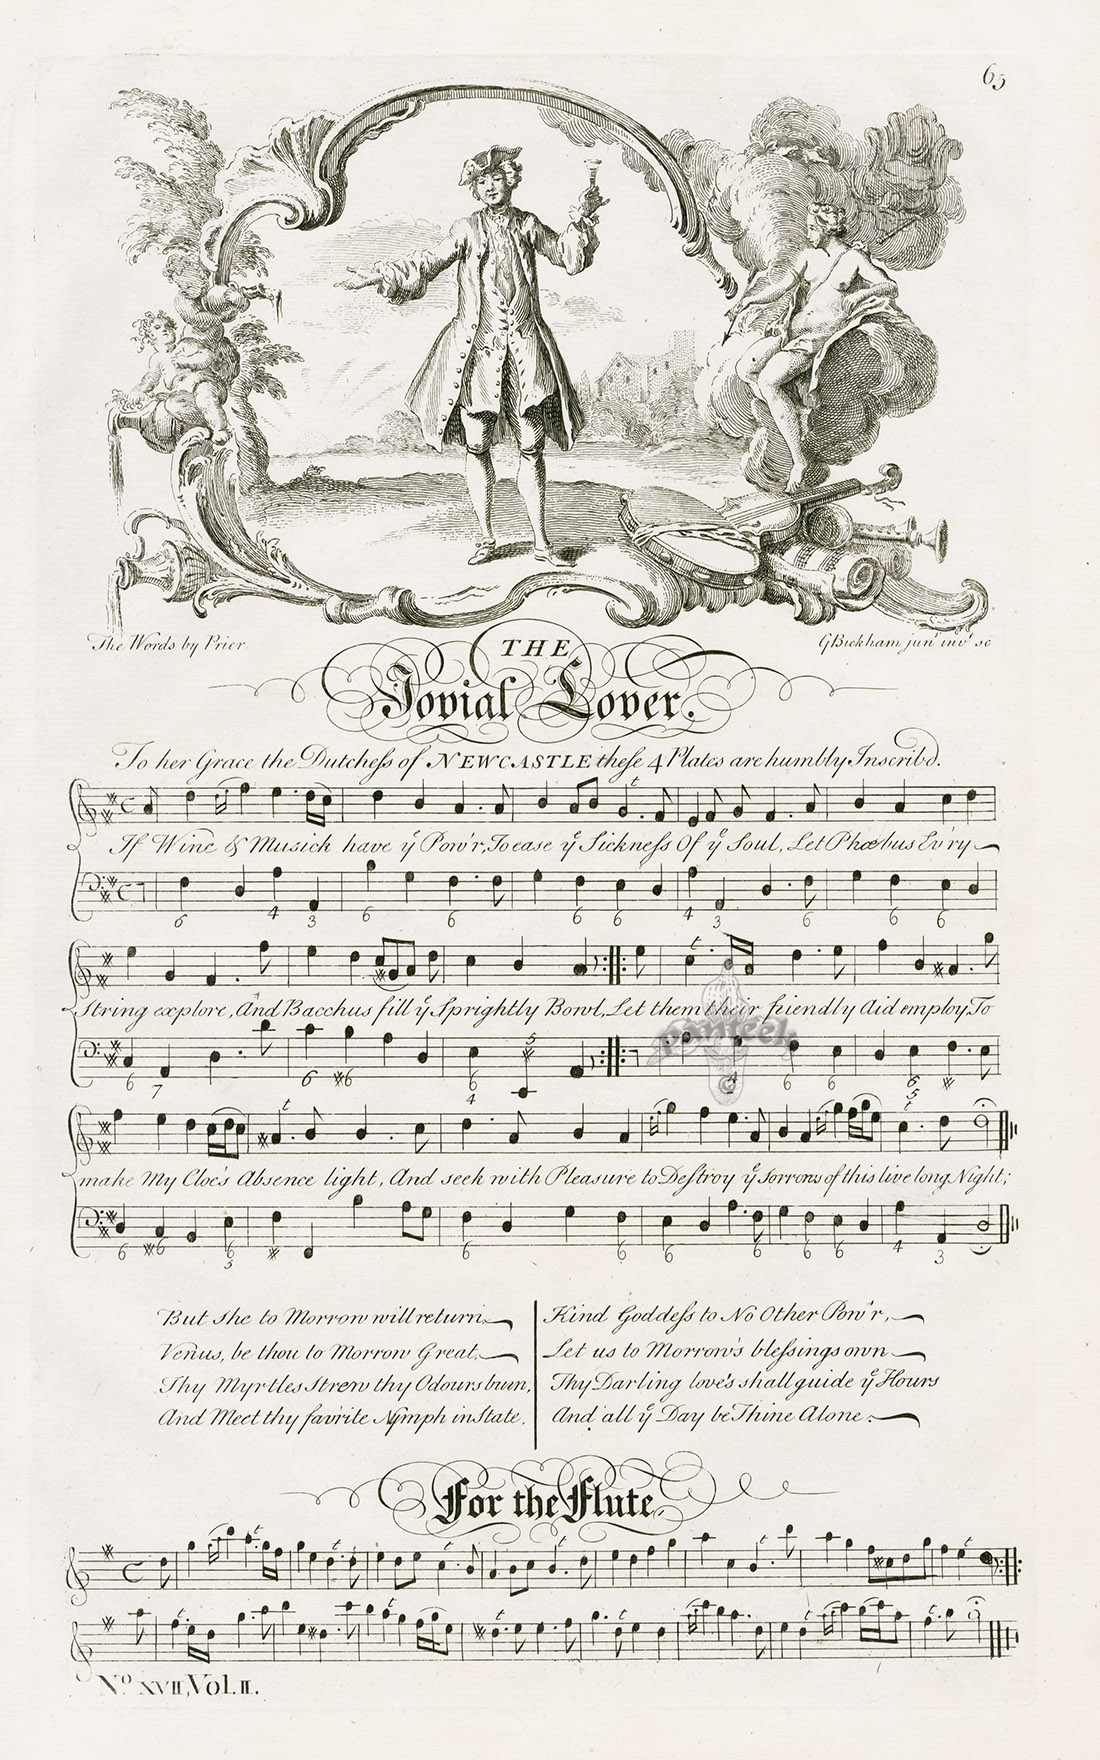 65
The Words by Prier.
G Bickham junr. invt. sc
THE
Jovial Lover.
To her Grace the Dutchess of NEWCASTLE these 4 Plates are humbly Inscrib'd.
If Wine & Musick have ye Pow'r, To ease ye Sickness Of ye Soul, Let Phœbus Ev'ry
String explore, And Bacchus fill ye Sprightly Bowl, Let them their friendly Aid employ, To
make My Cloe's Absence light, And seek with Pleasure to Destroy ye sorrows of this live long Night;
But she to Morrow will return
Venus, be thou to Morrow Great,
Thy Myrtles Strew thy Odours burn,
And Meet thy fav'rite Nymph in State.
Kind Goddess to No Other Pow'r,
Let us to Morrow's blessings own
Thy Darling love's shall guide ye Hours
And all ye Day be Thine Alone.
For the Flute.
No. XVII, Vol. II.
panteek